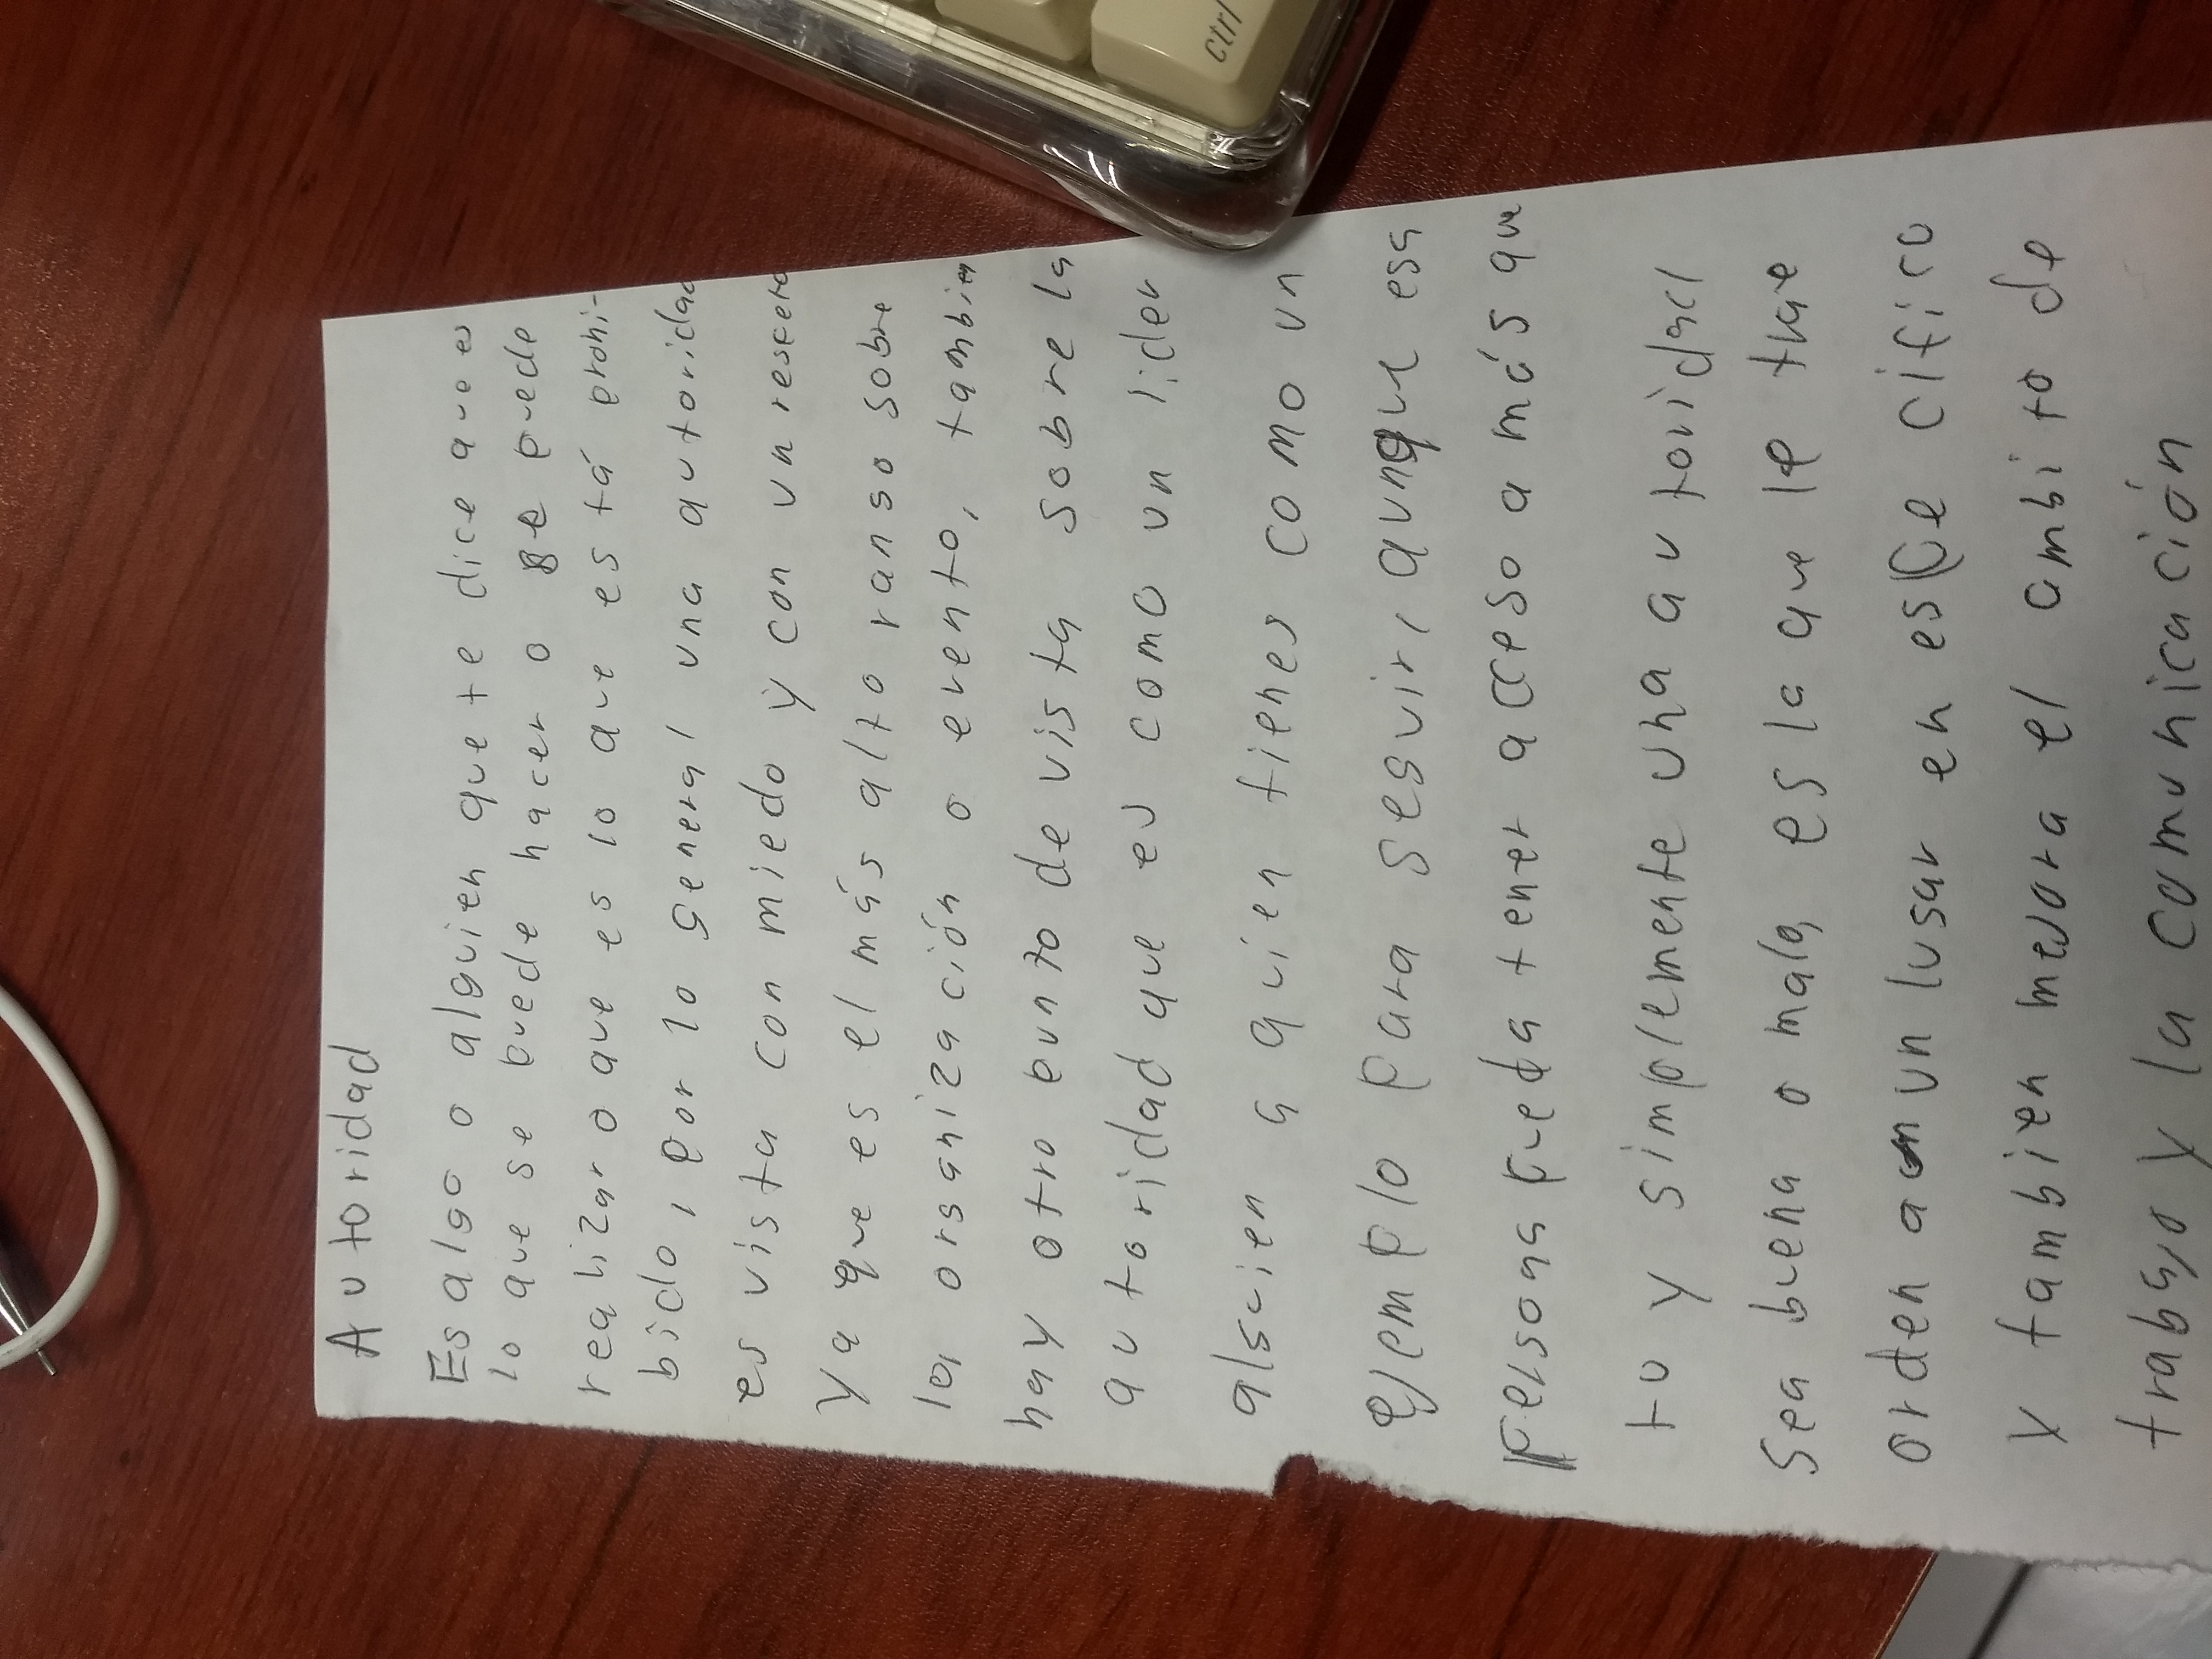 Autoridad
Es algo o alguien que te dice que es
lo que se puede hacer o se puede
realizar o que es lo que está prohi-
bido, por lo general una autoridad
es vista con miedo y con un respeto
ya que es el más alto rango sobre
la organización o evento, tambien
hay otro punto de vista sobre la
autoridad que es como un lider
alguien a quien tienes como un
ejemplo para seguir, aunque esa
persona pueda tener acceso a más que
tu y simplemente una autoridad
sea buena o mala, es la que le trae
orden a un lugar en especifico
y tambien mejora el ambito de
trabajo y la comunicación
ctrl